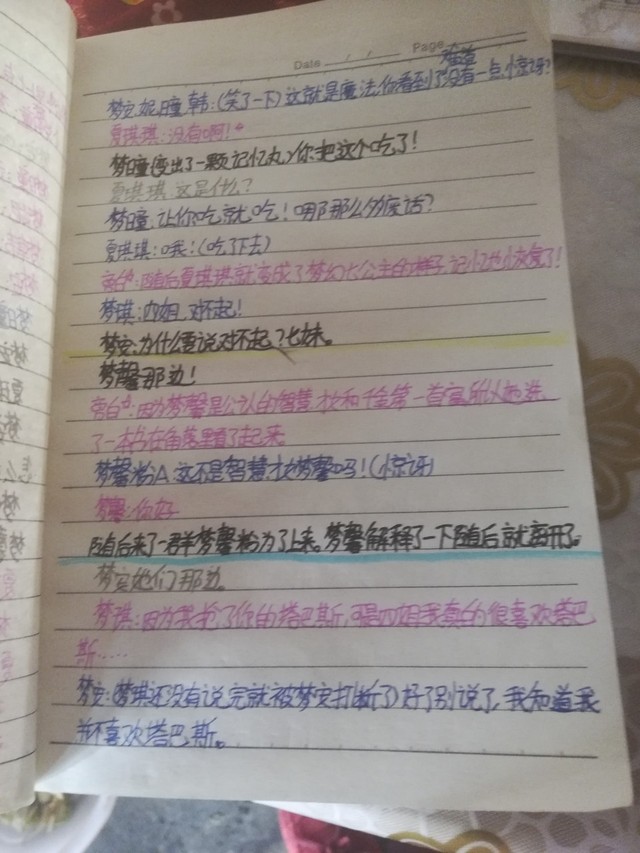 Date / / Page
难道
梦安,妮,瞳,韩:(笑了一下)这就是魔法,你看到了没有一点惊讶?
夏琪琪:没有啊!
梦瞳(变出了一颗记忆丸)你把这个吃了!
夏琪琪:这是什么?
梦瞳:让你吃就吃!哪那么多废话?
夏琪琪:哦!(吃了下去)
旁白:随后夏琪琪就变成了梦幻七公主的样子,记忆也恢复了!
梦琪:四姐,对不起!
梦安:为什么要说对不起?七妹。
梦馨那边!
旁白:因为梦馨是公认的智慧才女和千金第一首富,所以她选
了一本书在角落里看了起来
梦馨粉A:这不是智慧才女梦馨吗!(惊讶)
梦馨:你好
随后来了一群梦馨粉为了上来。梦馨解释了一下随后就离开了。
梦安她们那边。
梦琪:因为我抢了你的塔巴斯,可是四姐我真的很喜欢塔巴
斯……
梦安:(梦琪还没有说完就被梦安打断了)好了别说了,我知道,我
并不喜欢塔巴斯。